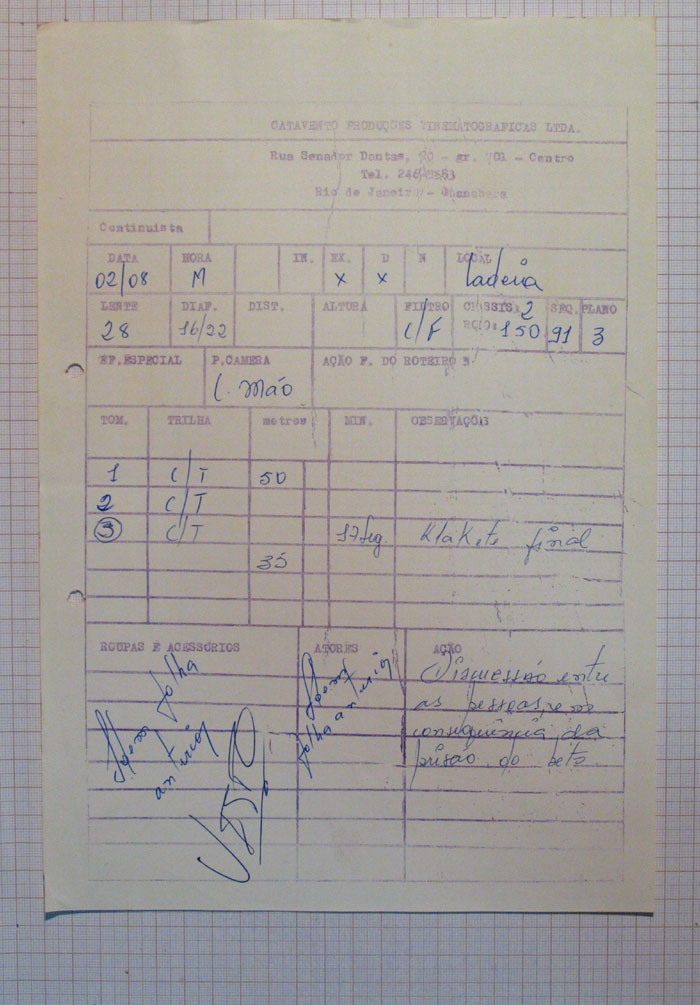 CATAVENTO PRODUÇÕES CINEMATOGRAFICAS LTDA.
Rua Senador Dantas, 20 - gr. 701 - Centro
Tel.
Rio de Janeiro - Guanabara
Continuista
DATA HORA IN. EX. D N LOCAL
02/08 M x x ladeira
LENTE DIAF. DIST. ALTURA FILTRO CHASSIS: 2 SEQ. PLANO
28 16/22 C/F ROLO: 150 91 3
EF. ESPECIAL P.CAMERA AÇÃO F. DO ROTEIRO N.
C. Mão
TOM. TRILHA metros MIN. OBSERVAÇÕES
1 C/T 50
2 C/T
3 C/T 17 seg. Klakete final
35
ROUPAS E ACESSÓRIOS ATORES AÇÃO
folha anterior
folha anterior
Discussão entre
as pessoas, em
consequência da
prisão do beto